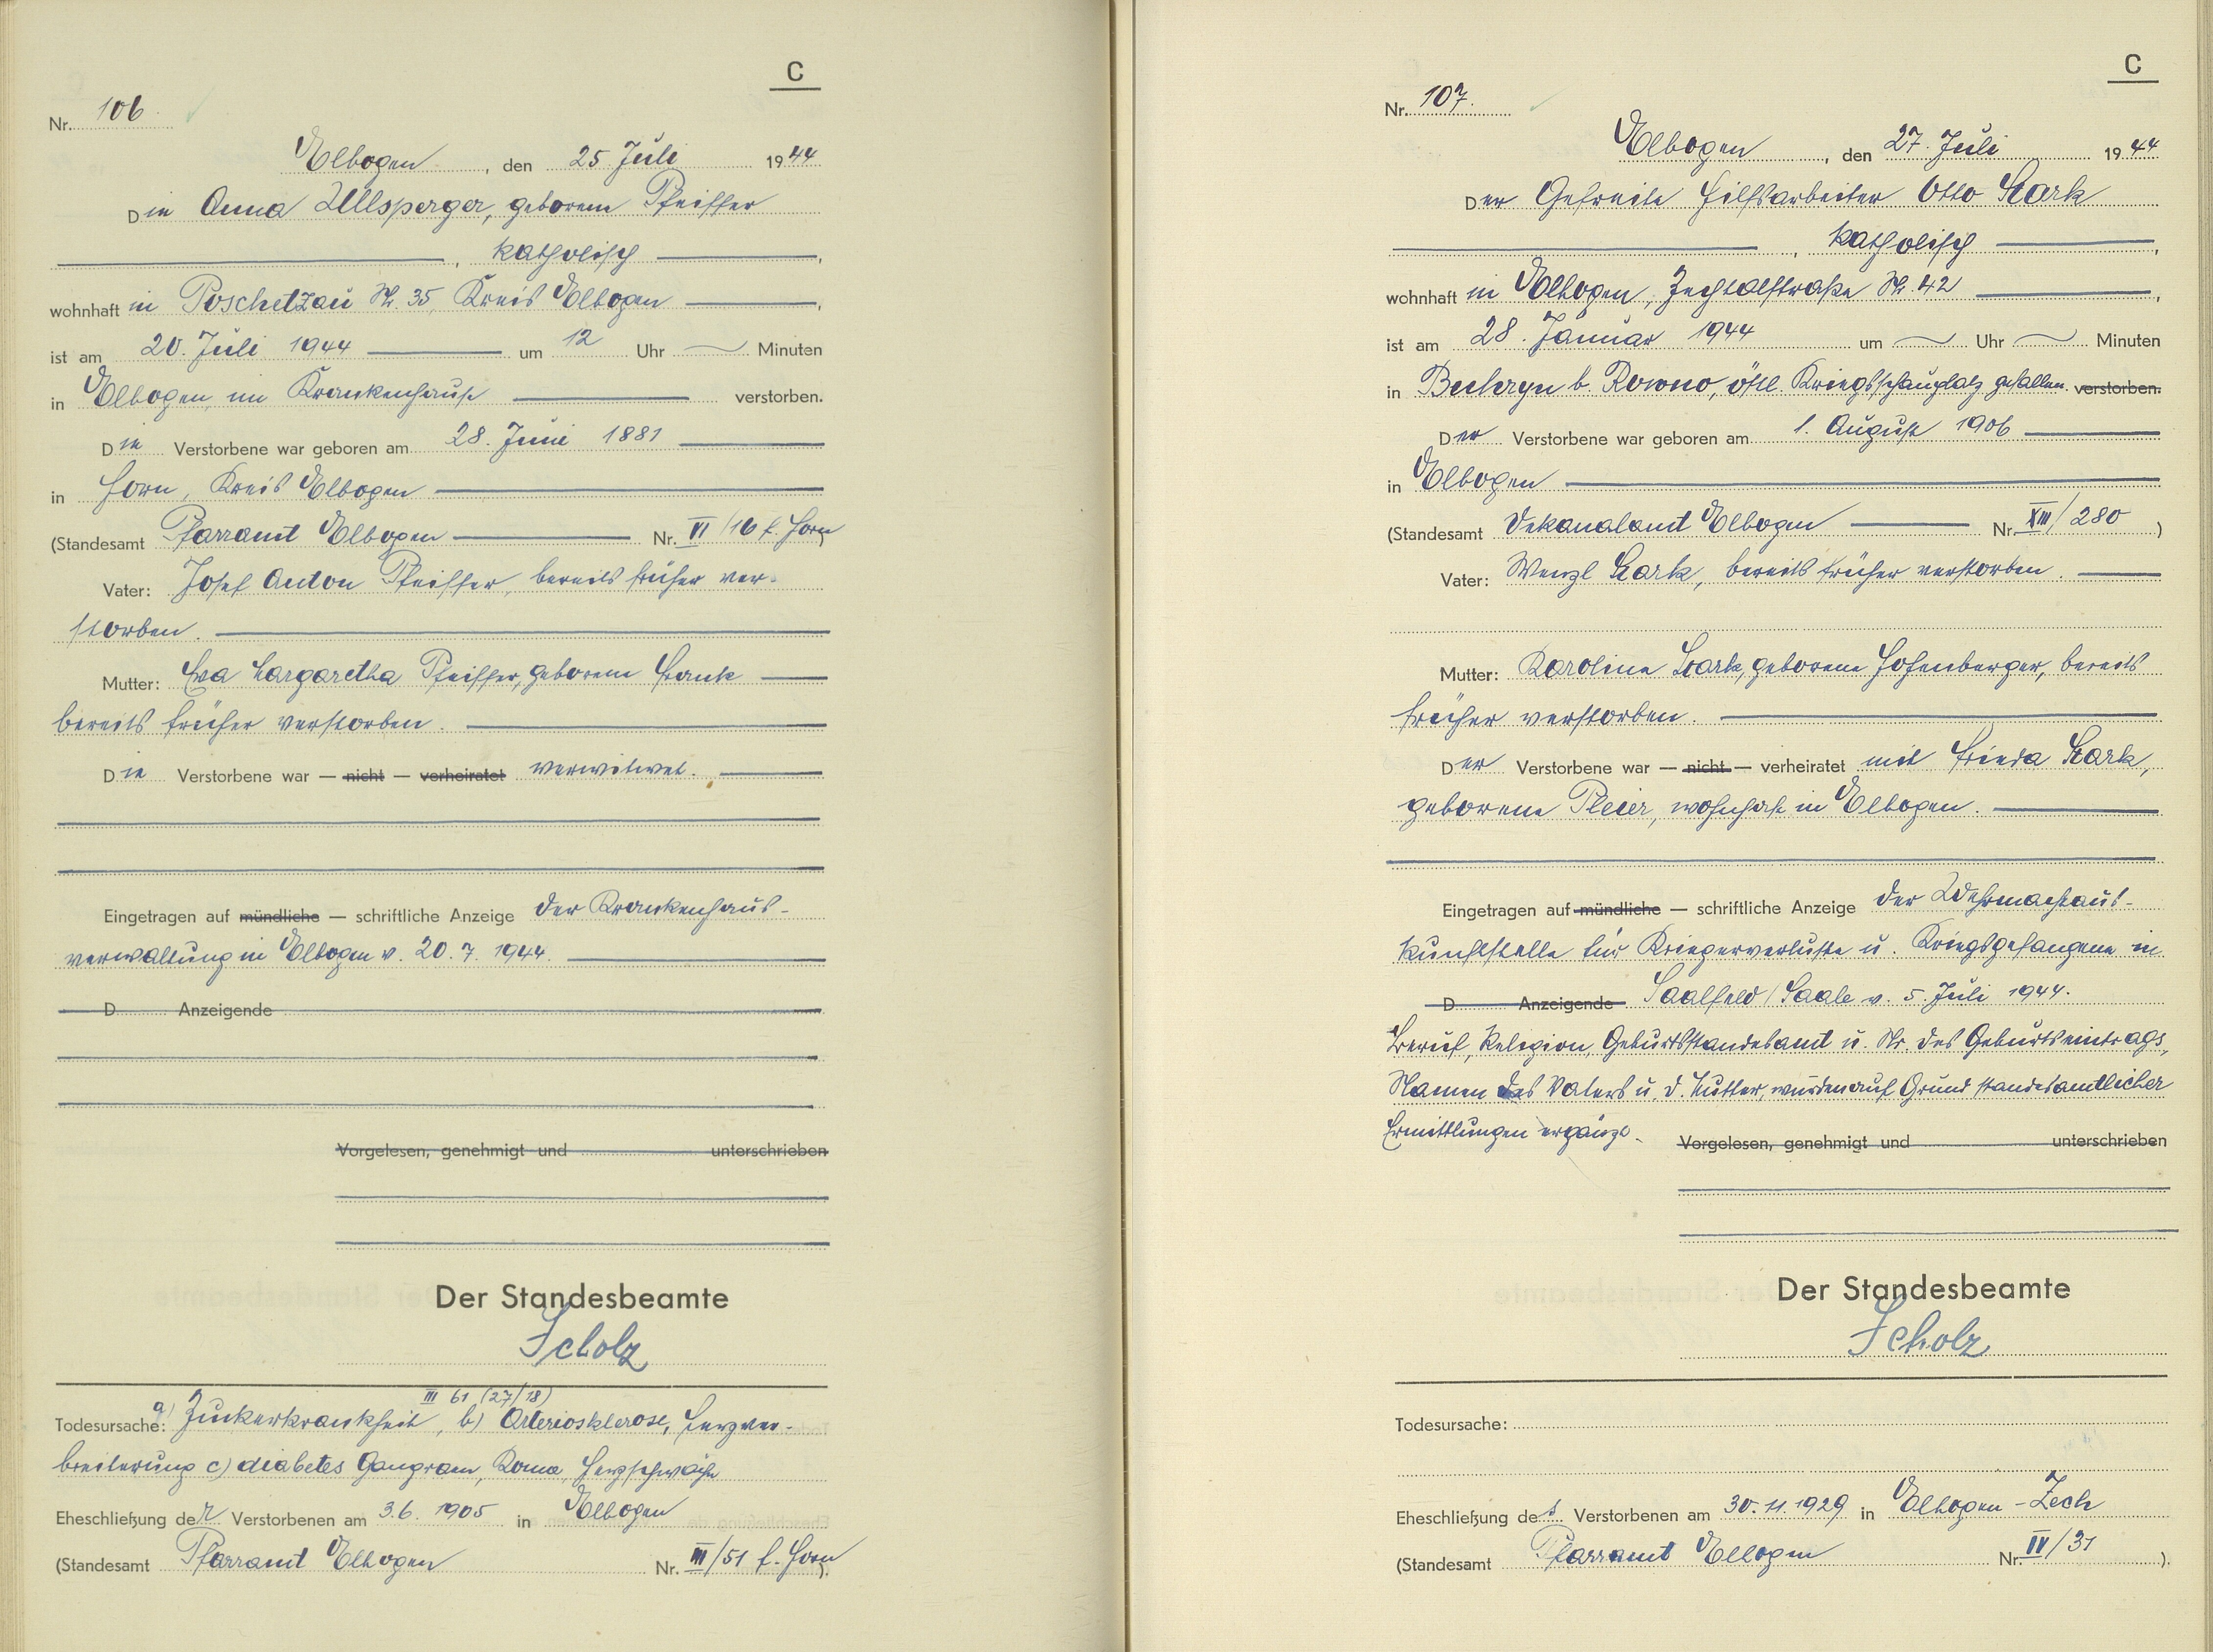 C
Nr. 106.
Elbogen, den 25. Juli 1944
Die Anna Ullsperger, geborene Pfeiffer
, katholisch ,
wohnhaft in Poschetzau Nr. 35, Kreis Elbogen ,
ist am 20. Juli 1944 um 12 Uhr Minuten
in Elbogen, im Krankenhause verstorben.
Die Verstorbene war geboren am 28. Juni 1881
in Horn, Kreis Elbogen
(Standesamt Pfarramt Elbogen Nr. VI/16 f. Horn)
Vater: Josef Anton Pfeiffer, bereits früher ver-
storben.
Mutter: Eva Margaretha Pfeiffer, geborene Frank
bereits früher verstorben.
Die Verstorbene war — nicht — verheiratet verwitwet.
Eingetragen auf mündliche — schriftliche Anzeige der Krankenhaus-
verwaltung in Elbogen v. 20.7.1944.
D Anzeigende
Vorgelesen, genehmigt und unterschrieben
Der Standesbeamte
Scholz
III 61 (27/18)
Todesursache: a) Zuckerkrankheit, b) Arteriosklerose, Herzver-
breiterung c) diabetes Gangraen, Koma, Herzschwäche
Eheschließung der Verstorbenen am 3.6.1905 in Elbogen
(Standesamt Pfarramt Elbogen Nr. III/51 f. Horn).
C
Nr. 107.
Elbogen, den 27. Juli 1944
Der Gefreite Hilfsarbeiter Otto Stark
, katholisch ,
wohnhaft in Elbogen, Zechtalstraße Nr. 42 ,
ist am 28. Januar 1944 um Uhr Minuten
in b. Rowno, östl. Kriegsschauplatz gefallen. verstorben.
Der Verstorbene war geboren am 1. August 1906
in Elbogen
(Standesamt Dekanalamt Elbogen Nr. XIII/280)
Vater: Wenzl Stark, bereits früher verstorben.
Mutter: Karolina Stark, geborene Hofenberger, bereits
früher verstorben.
Der Verstorbene war — nicht — verheiratet mit Frieda Stark,
geborene Pleier, wohnhaft in Elbogen.
Eingetragen auf mündliche — schriftliche Anzeige der Wehrmachtaus-
kunftstelle für Kriegerverluste u. Kriegsgefangene in
D Anzeigende Saalfeld/Saale v. 5. Juli 1944.
Beruf, Religion, Geburtsstandesamt u. Nr. des Geburtseintrags,
Namen des Vaters u. d. Mutter, wurden auf Grund standesamtlicher
Ermittlungen ergänzt. Vorgelesen, genehmigt und unterschrieben
Der Standesbeamte
Scholz
Todesursache:
Eheschließung des Verstorbenen am 30.11.1929 in Elbogen-Zech
(Standesamt Pfarramt Elbogen Nr. IV/31).